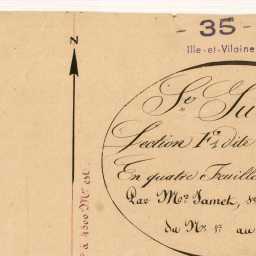 - 35 -
Ille-et-Vilaine
N
St. Su
Section F, dite
En quatre Feuille
Par Mr. Jamet,
du No. 1er au
à 4500 Mes est